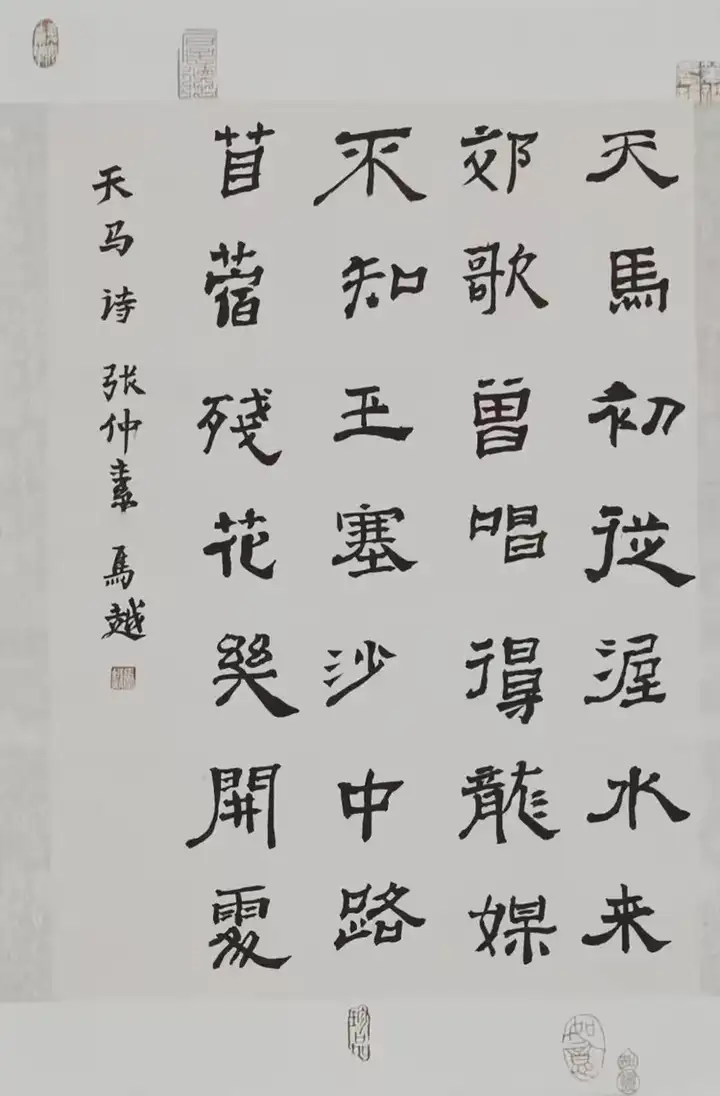 天馬初從渥水来
郊歌曽唱得龍媒
不知玉塞沙中路
苜蓿殘花幾開處
天马诗 张仲素 馬越
珍品
如意